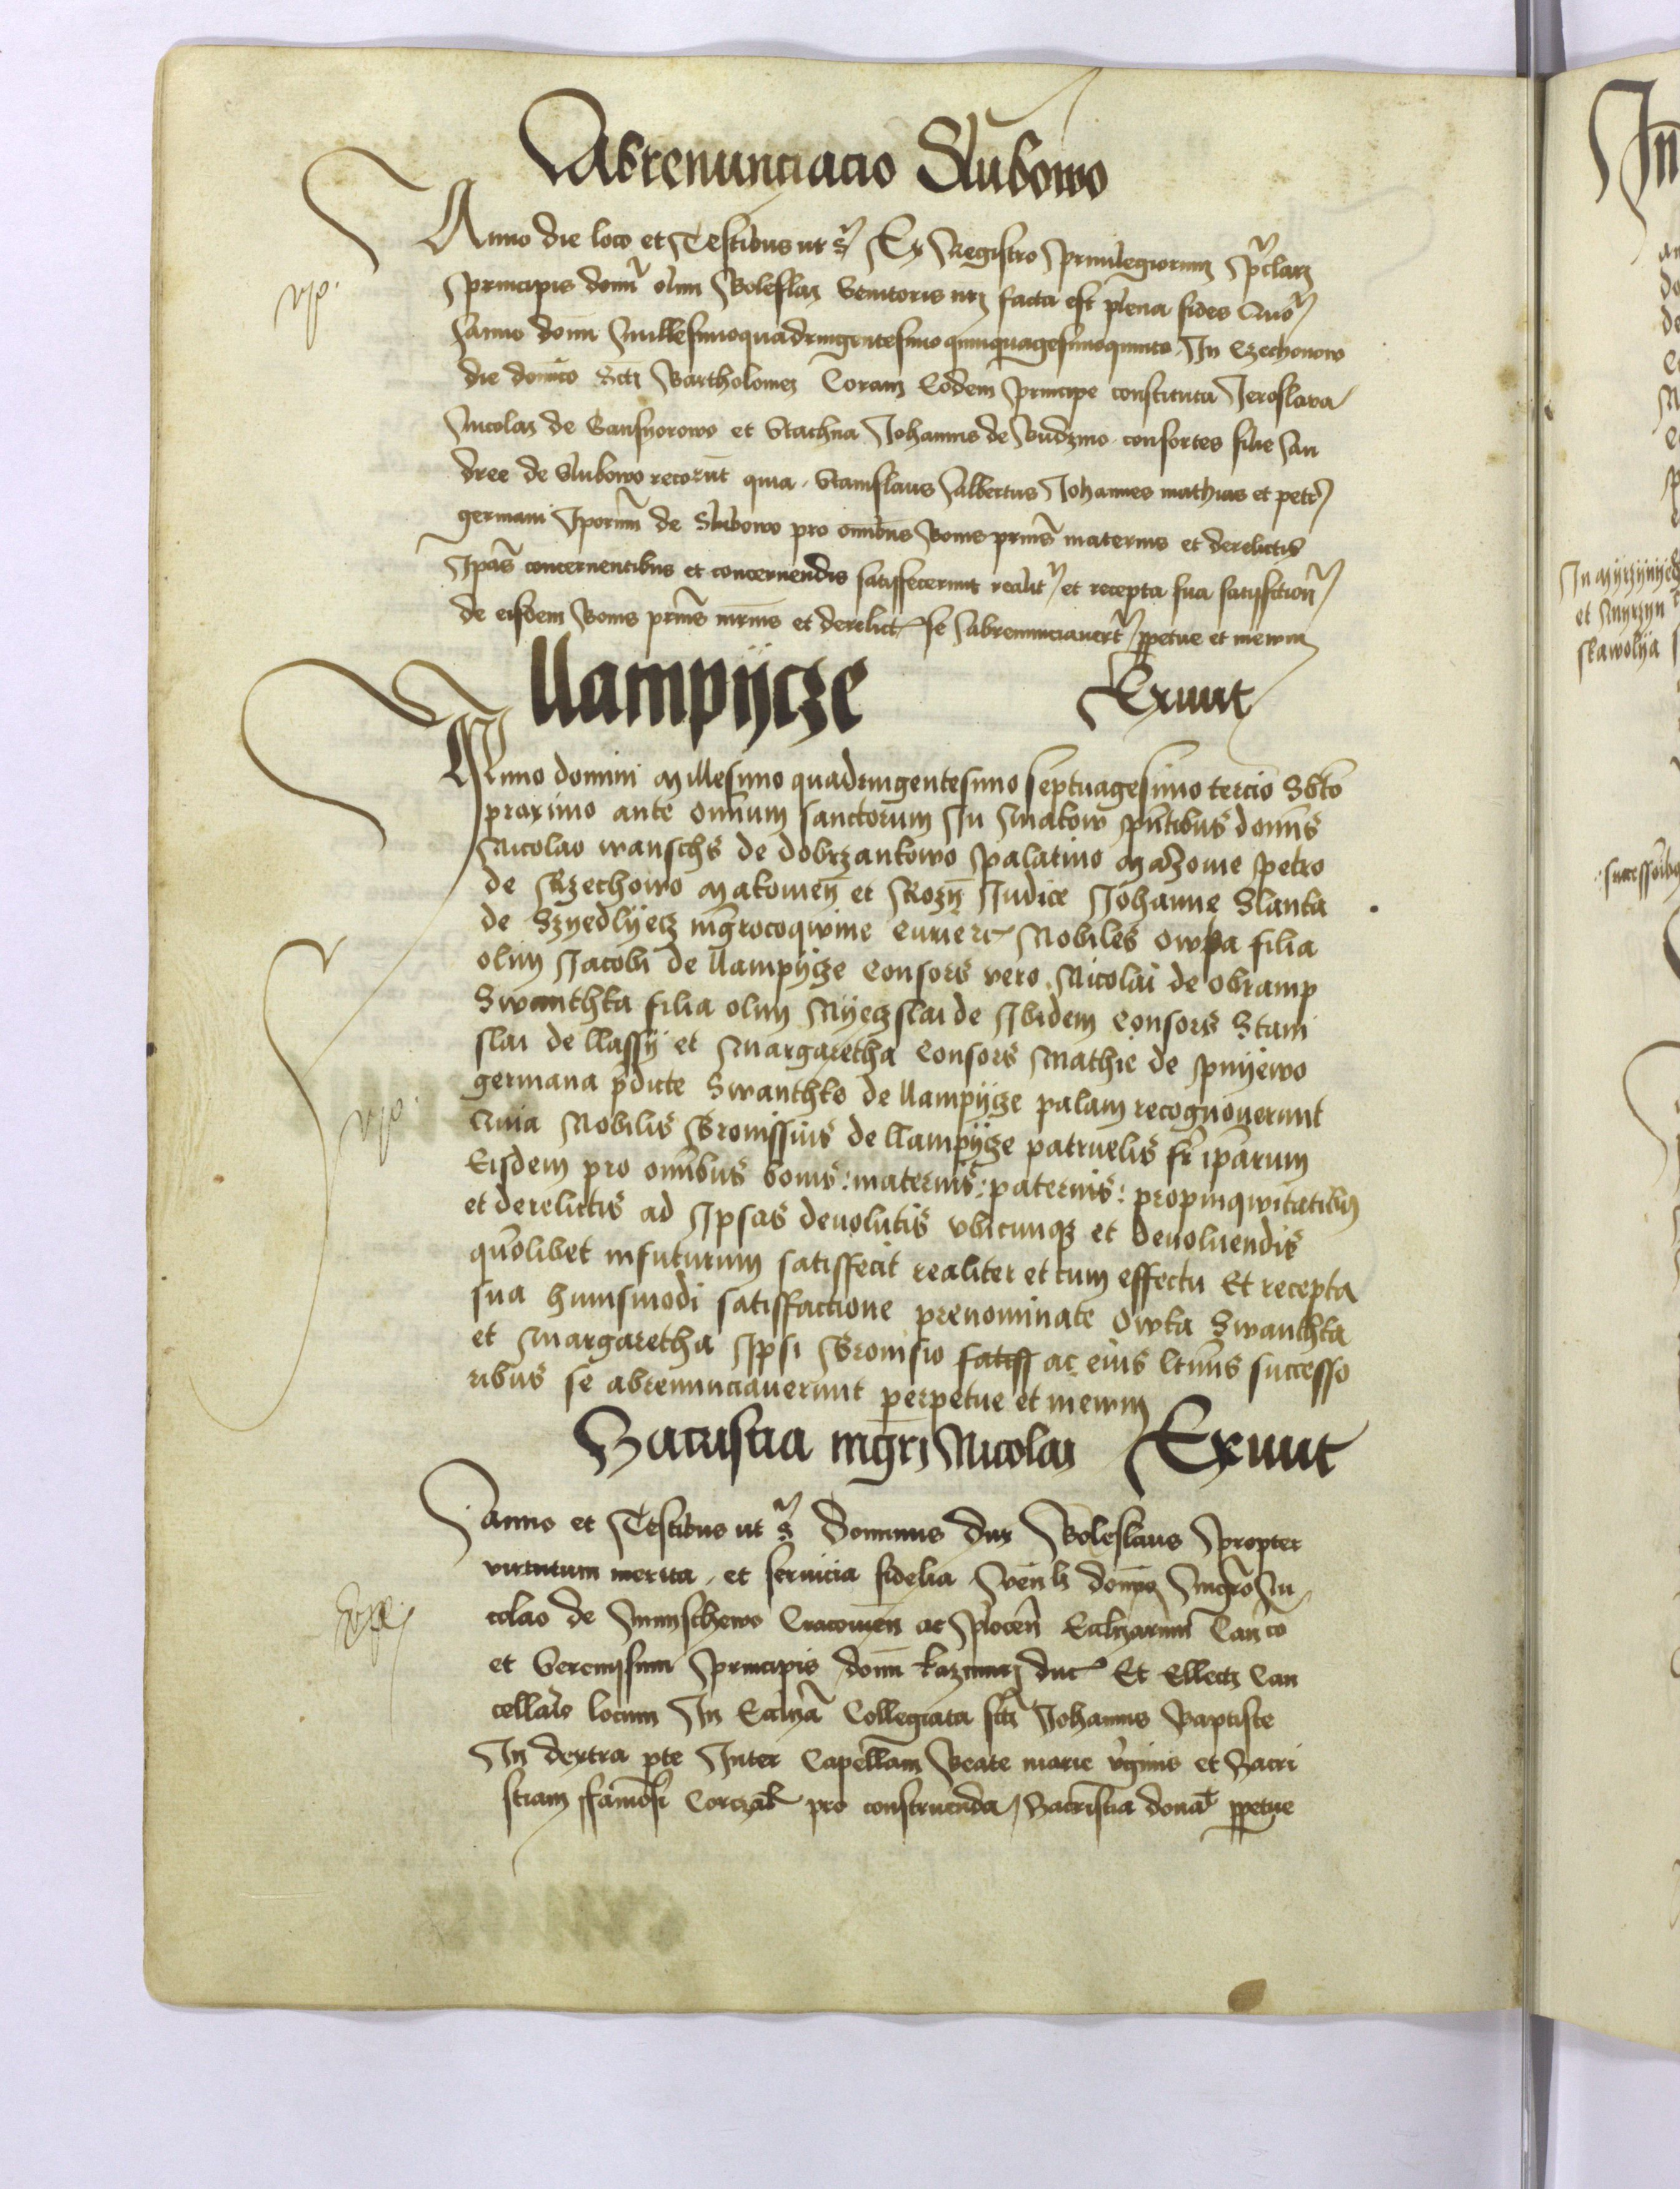 Abrenunciacio Slubowo
Anno die loco et Testibus ut s Ex Registro Privilegiorum p̃clarj
Principis domĩ olim Boleslaj Genitoris nrj facta est plena fides Quo
Anno domĩ Millesimoquadringentesimo quinquagesimoquinto In Czechonowo
die domĩco Sctj Bartholomej Coram Eodem Principe constituta Jeroslava
Nicolaj de Gansyorowo et Stachna Johannis de Budzino consortes filie An
dree de Slubowo recorũt quia Stanislaus Albertus Johannes mathias et petr
germani Iporum de Slubowo pro omibus Bonis prnis maternis et derelictis
Ipas concernentibus et concernendis satisfecerunt realit et recepta sua satisfction
de eisdem Bonis prnis mrnis et derelict se Abrenunciavert ppetue et inewm
llampÿcze Exiuit
Anno domini Millesimo quadringentesimo septuagesimo tercio Sbto
proximo ante omnium sanctorum In Makow pntibus domis
Nicolao wanschs de dobrzankowo palatino Mazouie Petro
de Rzechowo Makouien et Rozn Judice Johanne Slanka
de Szyedlÿecz mgrocoqwine Curie etc Nobiles Owka filia
olim Jacobi de llampÿcze Consors vero Nicolai de obramp
Swanthka filia olim Myeczslai de Ibidem Consors Stani
slai de llassÿ et Margaretha Consors Mathie de Pnÿewo
germana pdicte Swanthke de llampÿcze palam recognouerunt
Quia Nobilis Bronissius de llampÿcze patruelis fr iparum
Eisdem pro omibus bonis: maternis: paternis: propinqwitatibus
et derelictis ad Ipsas deuolutis vbicunqz et deuoluendis
quolibet infuturum satisfecit realiter et cum effectu Et recepta
sua huiusmodi satisfactione prenominate Owka Swanthka
et Margaretha Ipsi Bronisio satisf ac eius ltimis successo
ribus se abrenunciauerunt perpetue et inewm
Sacristia mgrj Nicolaj Exiuit
Anno et Testibus ut s Dominus dux Boleslaus Propter
virtutum merita et seruicia fidelia Venli domino Mgro Ni
colao de Mnyschewo Cracouien ac Plocen Ecclyarum Canco
et Serenissimi Principis domi kazimirj duc Et Ellectj Can
cellario locum In Ecclya Collegiata sctj Johannis Baptiste
In dextra pte Inter Capellam Beate marie vginis et Sacri
stiam ffamosi Corczak pro construenda Sacristia donat ppetue